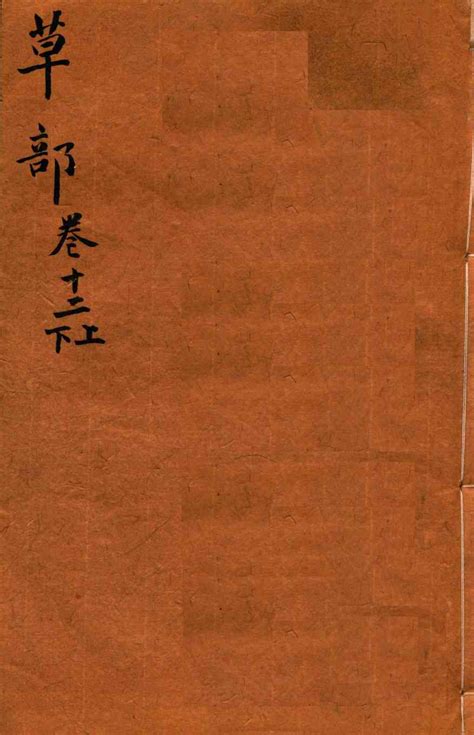 草部
卷十二上下